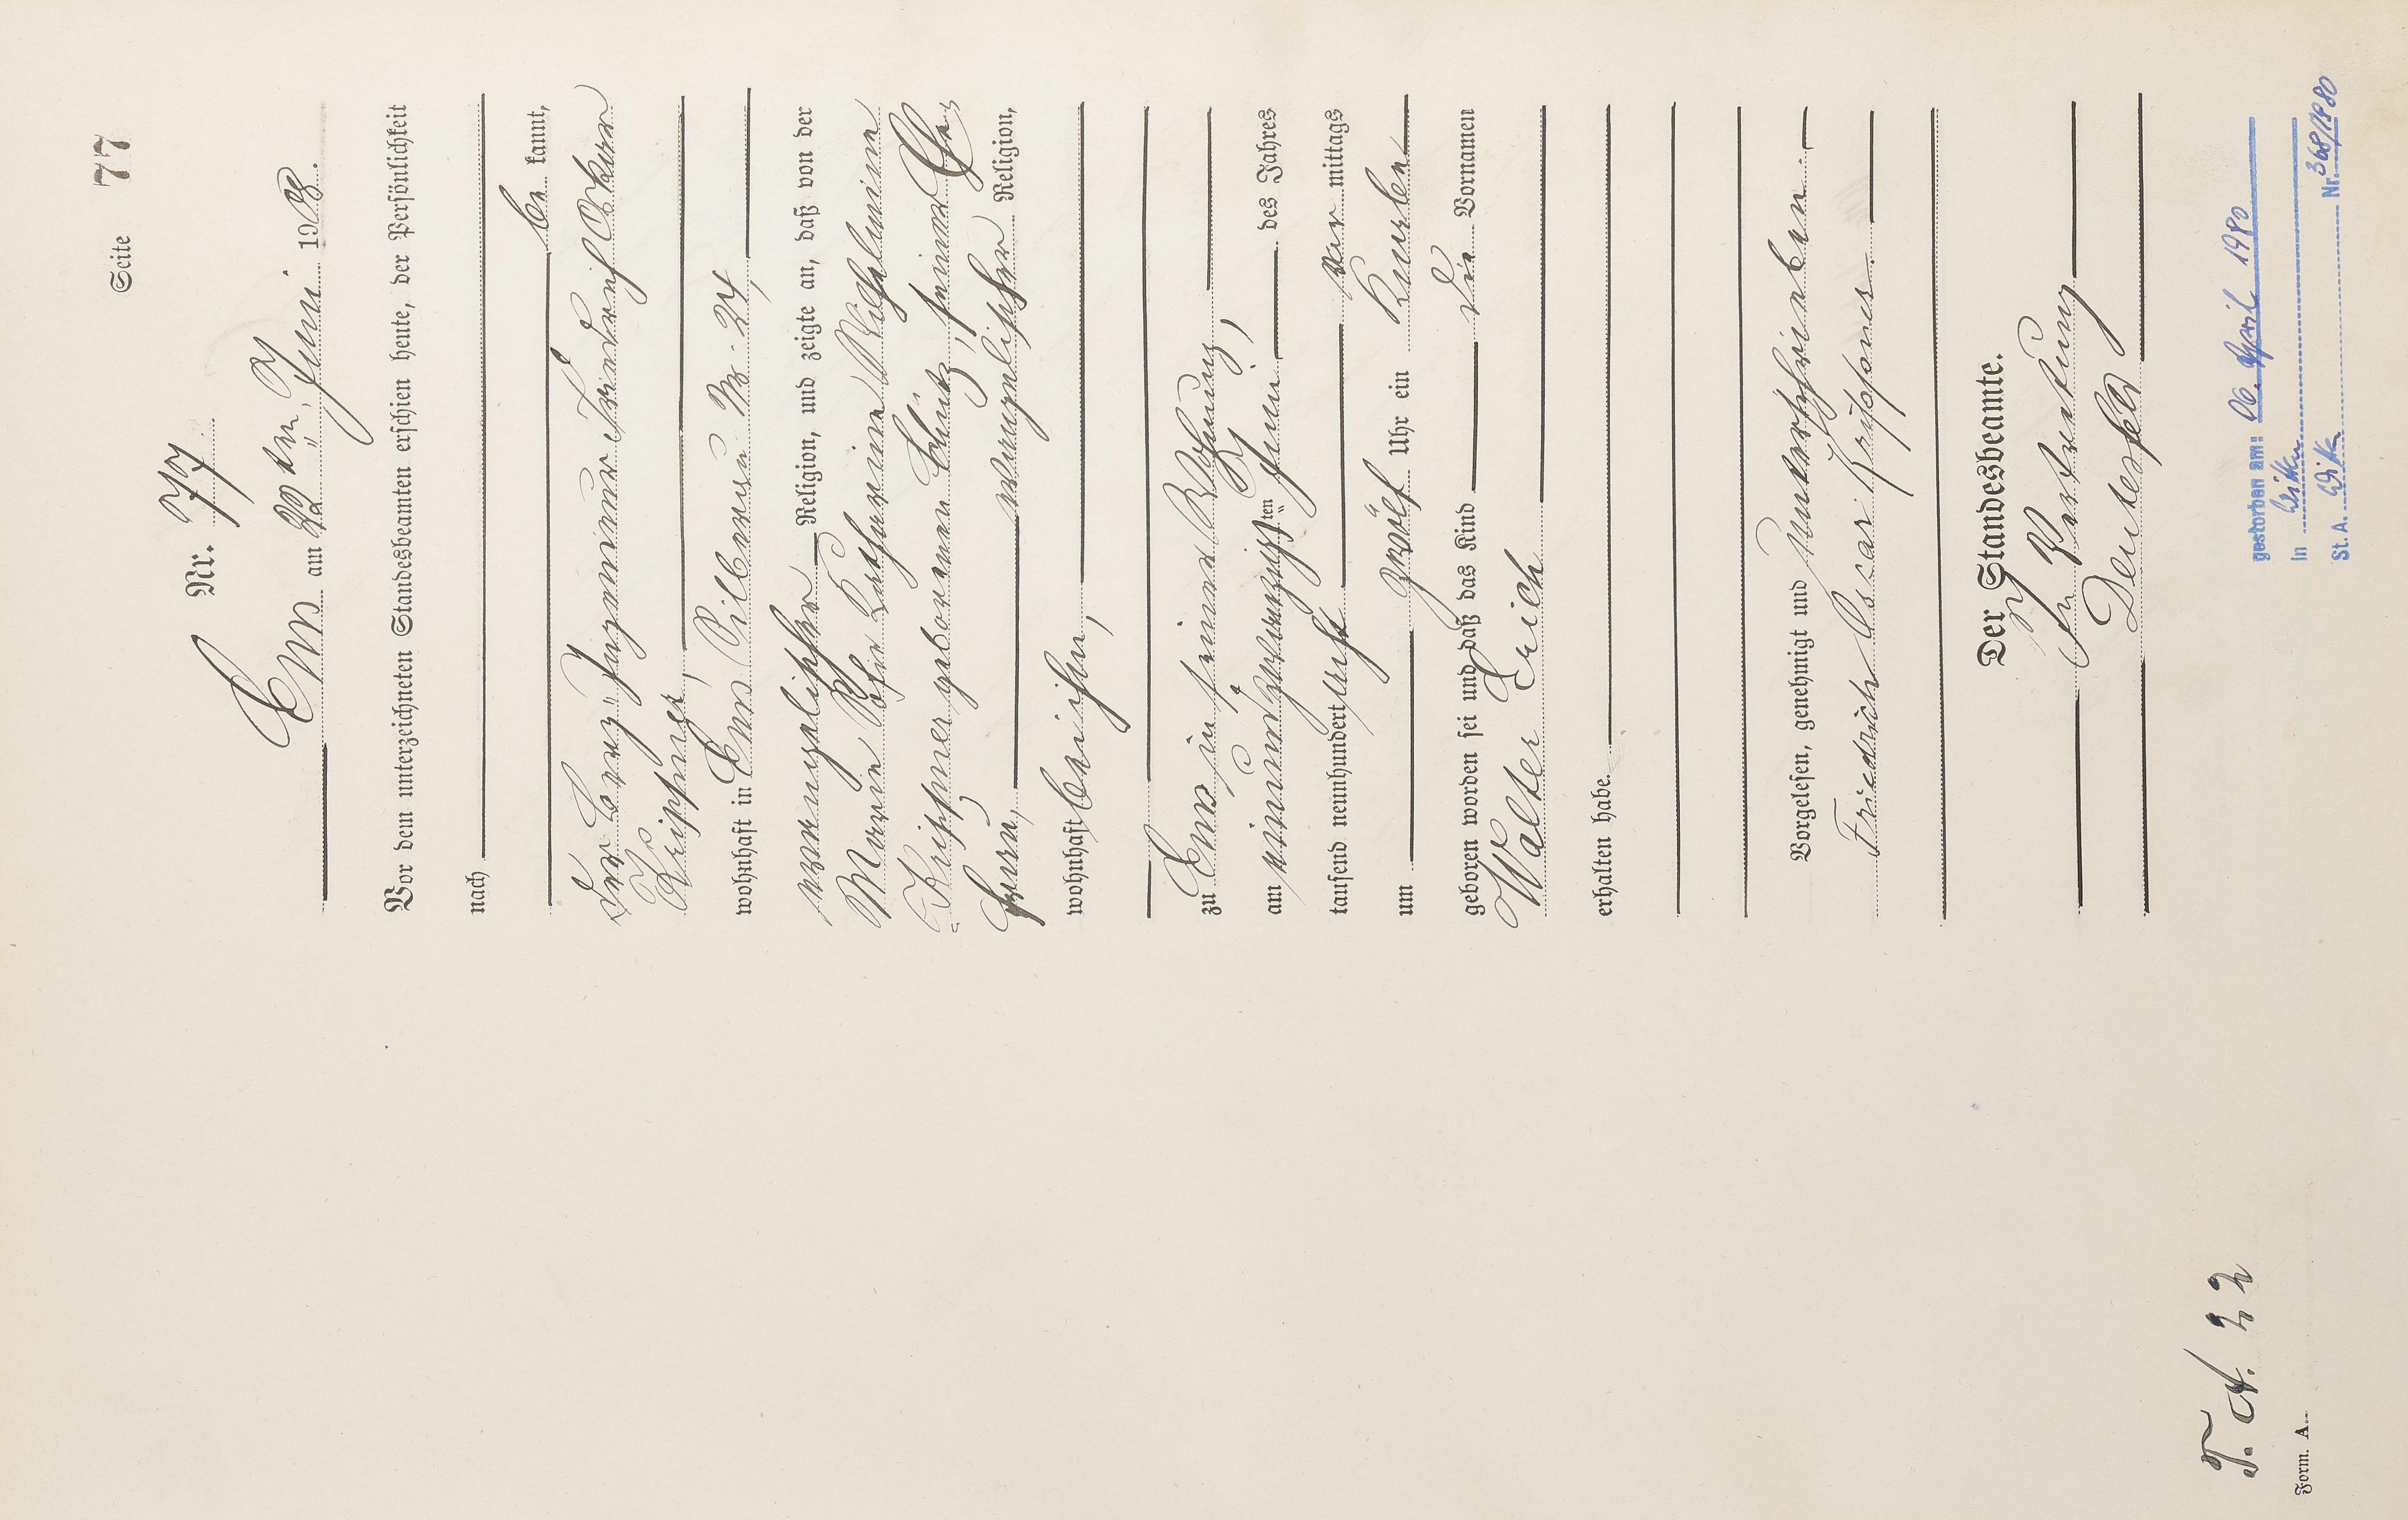 Seite 77
Nr. 77
Ems am 22ten Juni 1908.
Vor dem unterzeichneten Standesbeamten erschien heute, der Persönlichkeit
nach
be kannt,
der Berg-Ingenieur Friedrich Oskar
wohnhaft in Ems Silberau № 24,
evangelischer Religion, und zeigte an, daß von der
Marie Sofie Katharine Wilhelmine
geborenen seiner Ehe-
frau, evangelischer Religion,
wohnhaft bei ihm,
zu Ems in seiner Wohnung,
am einundzwanzigsten Juni des Jahres
tausend neunhundert acht vor mittags
um zwölf Uhr ein Knabe
geboren worden sei und daß das Kind die Vornamen
Walter Erich
erhalten habe.
Vorgelesen, genehmigt und unterschrieben.
Friedrich Oscar
Der Standesbeamte.
In Vertretung
Deutesfeld
gestorben am: 06. April 1980
in Witten
St. A. Witten Nr. 368/1980
T. A. 22
Form. A.